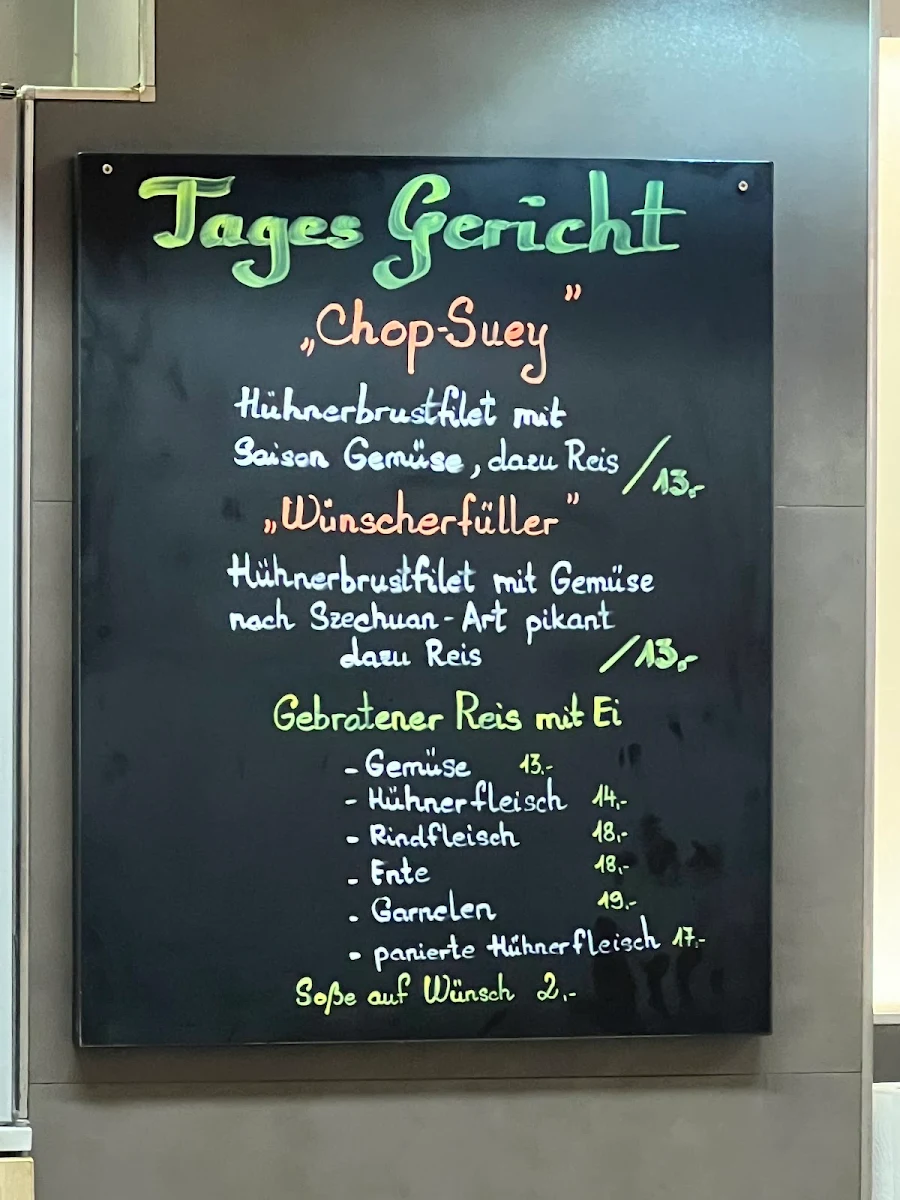 Tages Gericht
„Chop-Suey”
Hühnerbrustfilet mit
Saison Gemüse, dazu Reis /13,-
„Wünscherfüller”
Hühnerbrustfilet mit Gemüse
nach Szechuan-Art pikant
dazu Reis /13,-
Gebratener Reis mit Ei
- Gemüse 13.-
- Hühnerfleisch 14,-
- Rindfleisch 18,-
- Ente 18,-
- Garnelen 19.-
- panierte Hühnerfleisch 17.-
Soße auf Wünsch 2,-